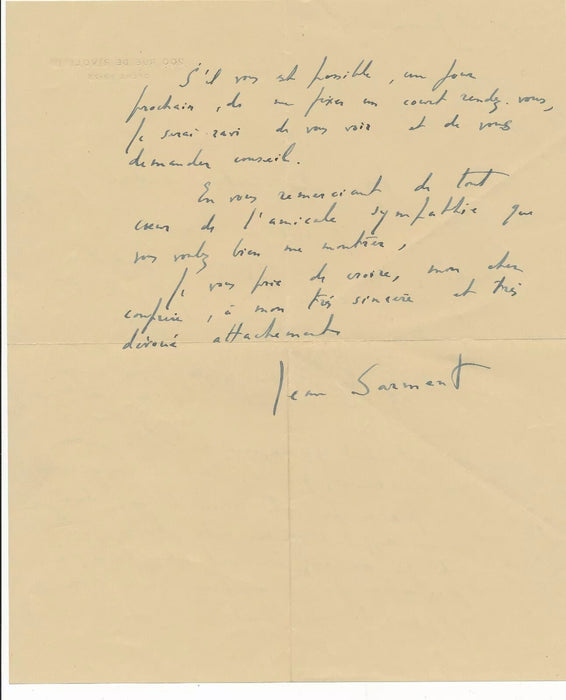 S'il vous est possible, un jour
prochain, de me fixer un court rendez-vous,
je serai ravi de vous voir et de vous
demander conseil.
En vous remerciant de tout
cœur de l'amicale sympathie que
vous voulez bien me montrer,
je vous prie de croire, mon cher
confrère, à mon très sincère et très
dévoué attachement
Jean Sarment